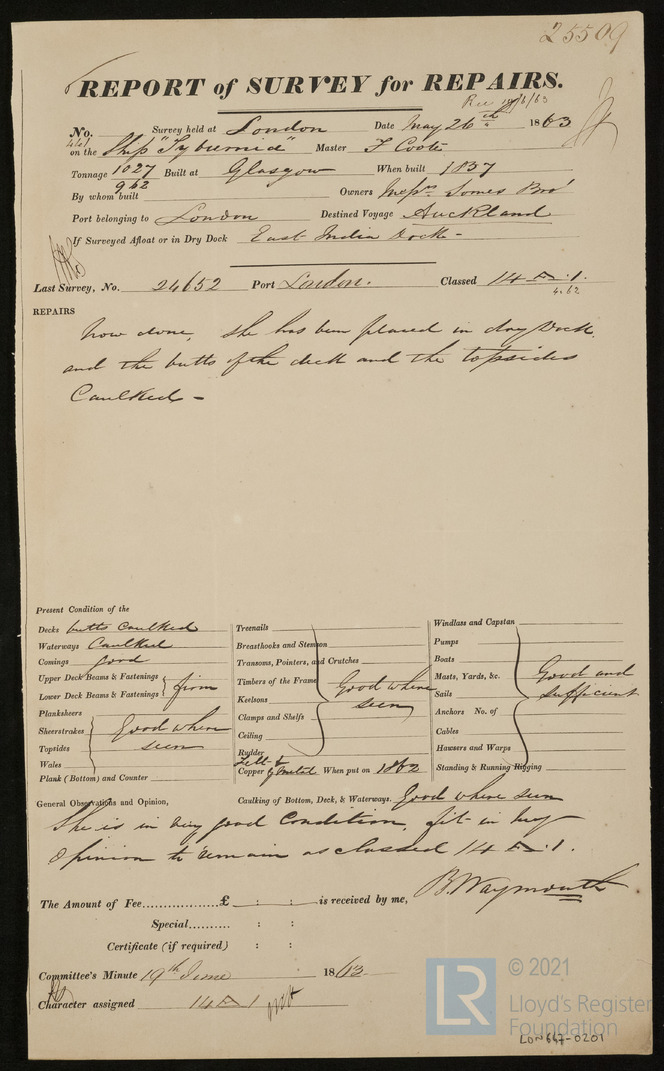 25509
REPORT of SURVEY for REPAIRS.
No. Survey held at London Date May 26th 1863
on the Ship "Tyburnia" Master J Coote
Tonnage 1027 Built at Glasgow When built 1857
962
By whom built Owners Messrs Somes Bros
Port belonging to London Destined Voyage Auckland
If Surveyed Afloat or in Dry Dock East India Dock -
Last Survey, No. 24652 Port London. Classed 14 A.1.
4.62
REPAIRS
now done, She has been placed in dry Dock
and the butts of the deck and the topsides
Caulked -
Present Condition of the
Decks butts Caulked
Waterways Caulked
Comings good
Upper Deck Beams & Fastenings
Lower Deck Beams & Fastenings firm
Planksheers
Sheerstrakes Good where
Topsides seen
Wales
Plank (Bottom) and Counter
Treenails
Breasthooks and Stemson
Transoms, Pointers, and Crutches
Timbers of the Frame Good where
Keelsons seen
Clamps and Shelfs
Ceiling
Rudder
Felt &
Copper y Metal When put on 1862
Windlass and Capstan
Pumps
Boats
Masts, Yards, &c. Good and
Sails sufficient
Anchors No. of
Cables
Hawsers and Warps
Standing & Running Rigging
General Observations and Opinion, Caulking of Bottom, Deck, & Waterways. Good where seen
She is in very good Condition, fit in my
Opinion to remain as classed 14 A.1.
B. Waymouth
The Amount of Fee................£ : : is received by me,
Special.......... : :
Certificate (if required) : :
Committee's Minute 19th June 1863
Character assigned 14 A 1
© 2021
LR
Lloyd's Register
Foundation
LON647-0201